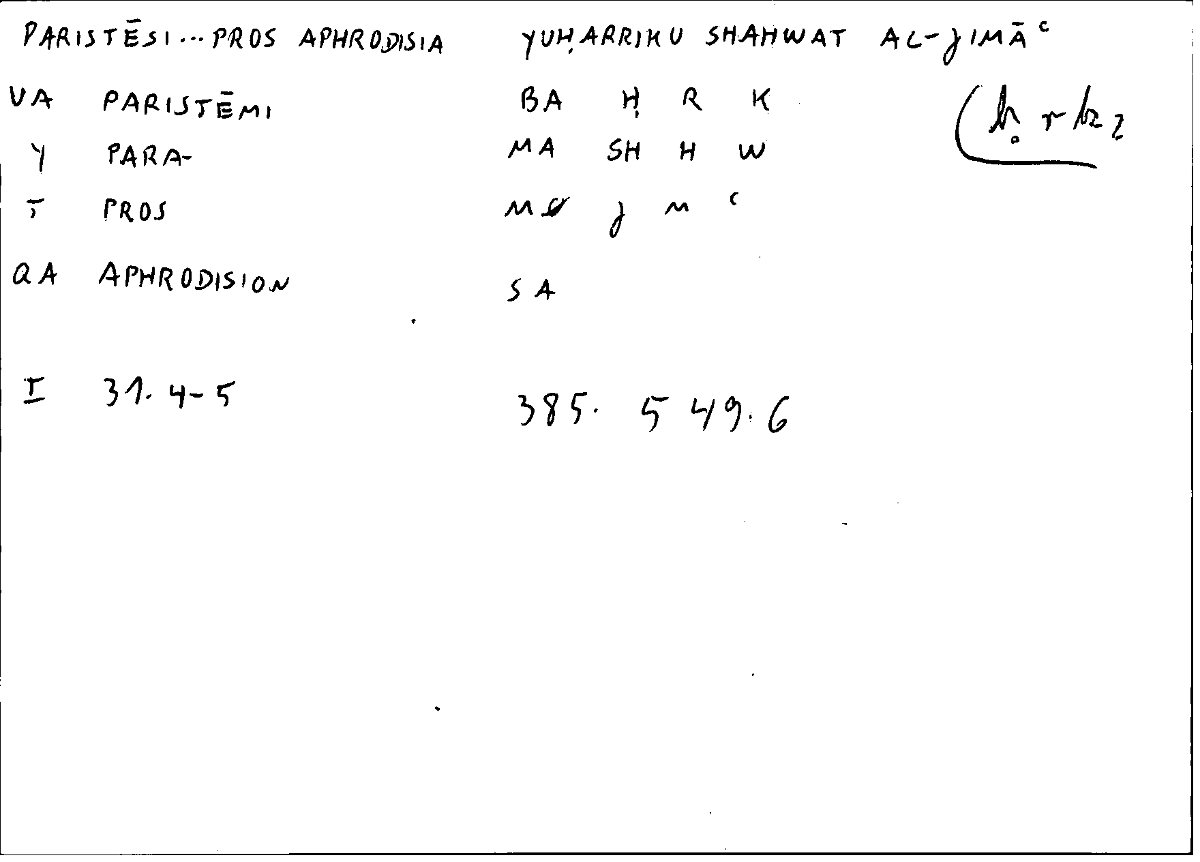 PARISTĒSI... PROS APHRODISIA YUḤARRIKU SHAHWAT AL-JIMĀʿ
VA PARISTĒMI BA Ḥ R K (ḥ r k 2
Y PARA- MA SH H W
T PROS M J M ʿ
QA APHRODISION SA
I 31.4-5 385. 5 49.6